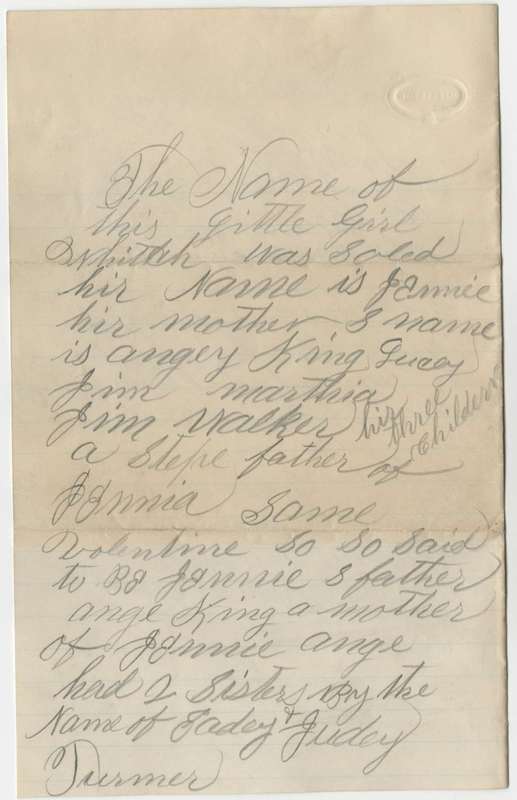 The Name of
this Little Girl
Whitch was Soled
hir Name is Jennie
hir mother S name
is angey King Lucey
Jim marthia
Jim Walker hir three Childern
a Stepe father of
Jennia Same
Valentine So So Said
to Be Jennie S father
ange King a mother
of Jennie ange
had 2 Sisters By the
Name of Eadey & Judey
Turmer